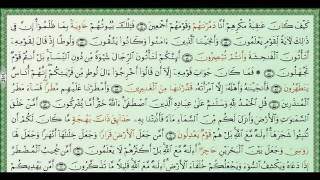 كَيْفَ كَانَ عَٰقِبَةُ مَكْرِهِمْ أَنَّا دَمَّرْنَٰهُمْ وَقَوْمَهُمْ أَجْمَعِينَ فَتِلْكَ بُيُوتُهُمْ خَاوِيَةًۢ بِمَا ظَلَمُوٓا۟ إِنَّ فِى
ذَٰلِكَ لَءَايَةً لِّقَوْمٍ يَعْلَمُونَ وَأَنجَيْنَا ٱلَّذِينَ ءَامَنُوا۟ وَكَانُوا۟ يَتَّقُونَ وَلُوطًا إِذْ قَالَ لِقَوْمِهِۦٓ
أَتَأْتُونَ ٱلْفَٰحِشَةَ وَأَنتُمْ تُبْصِرُونَ أَئِنَّكُمْ لَتَأْتُونَ ٱلرِّجَالَ شَهْوَةً مِّن دُونِ ٱلنِّسَآءِ بَلْ أَنتُمْ قَوْمٌ
تَجْهَلُونَ فَمَا كَانَ جَوَابَ قَوْمِهِۦٓ إِلَّآ أَن قَالُوٓا۟ أَخْرِجُوٓا۟ ءَالَ لُوطٍ مِّن قَرْيَتِكُمْ إِنَّهُمْ أُنَاسٌ
يَتَطَهَّرُونَ فَأَنجَيْنَٰهُ وَأَهْلَهُۥٓ إِلَّا ٱمْرَأَتَهُۥ قَدَّرْنَٰهَا مِنَ ٱلْغَٰبِرِينَ وَأَمْطَرْنَا عَلَيْهِم مَّطَرًا فَسَآءَ مَطَرُ ٱلْمُنذَرِينَ
قُلِ ٱلْحَمْدُ لِلَّهِ وَسَلَٰمٌ عَلَىٰ عِبَادِهِ ٱلَّذِينَ ٱصْطَفَىٰٓ ءَآللَّهُ خَيْرٌ أَمَّا يُشْرِكُونَ أَمَّنْ خَلَقَ ٱلسَّمَٰوَٰتِ
وَٱلْأَرْضَ وَأَنزَلَ لَكُم مِّنَ ٱلسَّمَآءِ مَآءً فَأَنۢبَتْنَا بِهِۦ حَدَآئِقَ ذَاتَ بَهْجَةٍ مَّا كَانَ لَكُمْ أَن
تُنۢبِتُوا۟ شَجَرَهَآ أَءِلَٰهٌ مَّعَ ٱللَّهِ بَلْ هُمْ قَوْمٌ يَعْدِلُونَ أَمَّن جَعَلَ ٱلْأَرْضَ قَرَارًا وَجَعَلَ خِلَٰلَهَآ أَنْهَٰرًا وَجَعَلَ لَهَا
رَوَٰسِىَ وَجَعَلَ بَيْنَ ٱلْبَحْرَيْنِ حَاجِزًا أَءِلَٰهٌ مَّعَ ٱللَّهِ بَلْ أَكْثَرُهُمْ لَا يَعْلَمُونَ أَمَّن يُجِيبُ ٱلْمُضْطَرَّ
إِذَا دَعَاهُ وَيَكْشِفُ ٱلسُّوٓءَ وَيَجْعَلُكُمْ خُلَفَآءَ ٱلْأَرْضِ أَءِلَٰهٌ مَّعَ ٱللَّهِ قَلِيلًا مَّا تَذَكَّرُونَ أَمَّن يَهْدِيكُمْ